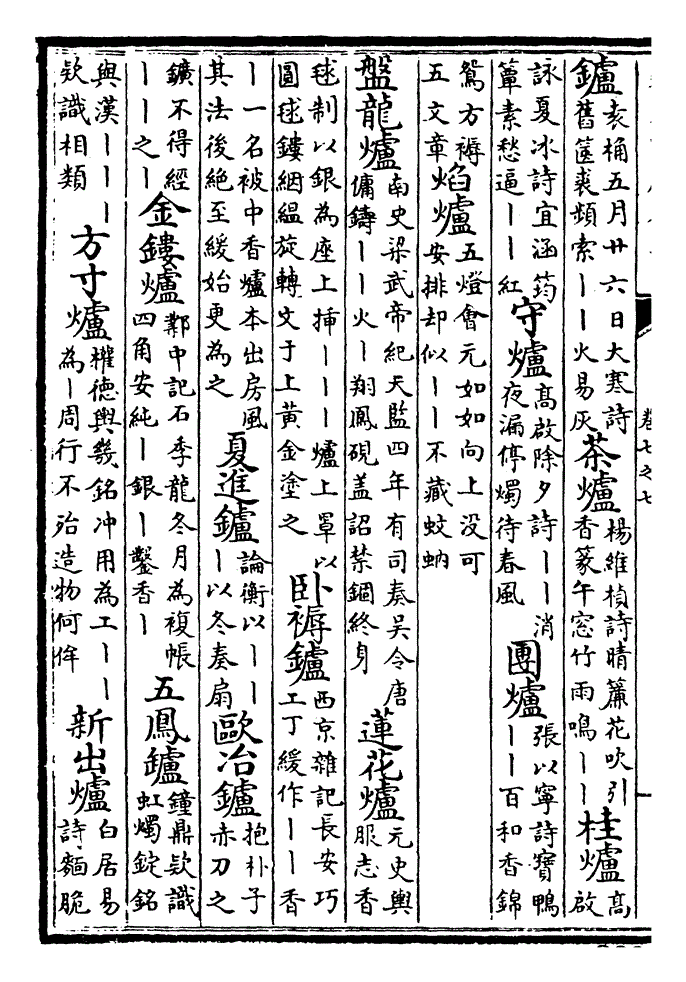 鑪袁桷五月廿六日大寒詩舊篋裘頻索丨丨火易灰茶爐楊維楨詩晴簾花吹引香篆午窓竹雨鳴丨丨桂爐高啟
詠夏冰詩宜涵筠簟素愁逼丨丨紅守爐高啟除夕詩丨丨消夜漏停燭待春風團爐張以寧詩寶鴨丨丨百和香錦
鴛方褥五文章焰爐五燈會元如如向上没可安排却似丨丨不藏蚊蚋
盤龍爐南史梁武帝紀天監四年有司奏吴令唐傭鑄丨丨火丨翔鳳硯盖詔禁錮終身蓮花爐元史輿服志香
毬制以銀為座上揷丨丨丨爐上罩以圓毬鏤絪緼旋轉文于上黄金塗之卧褥鑪西京雜記長安巧工丁緩作丨丨香
丨一名被中香爐本出房風其法後絶至緩始更為之夏進鑪論衡以丨丨丨以冬奏扇歐冶鑪抱朴子赤刀之
鑛不得經丨丨之丨金鏤爐鄴中記石季龍冬月為複帳四角安純丨銀丨鑿香丨五鳳鑪鐘鼎欵識虹燭錠銘
與漢丨丨丨欵識相類方寸爐權德輿幾銘冲用為工丨丨為丨周行不殆造物何侔新出爐白居易詩麵脆
卷七之七